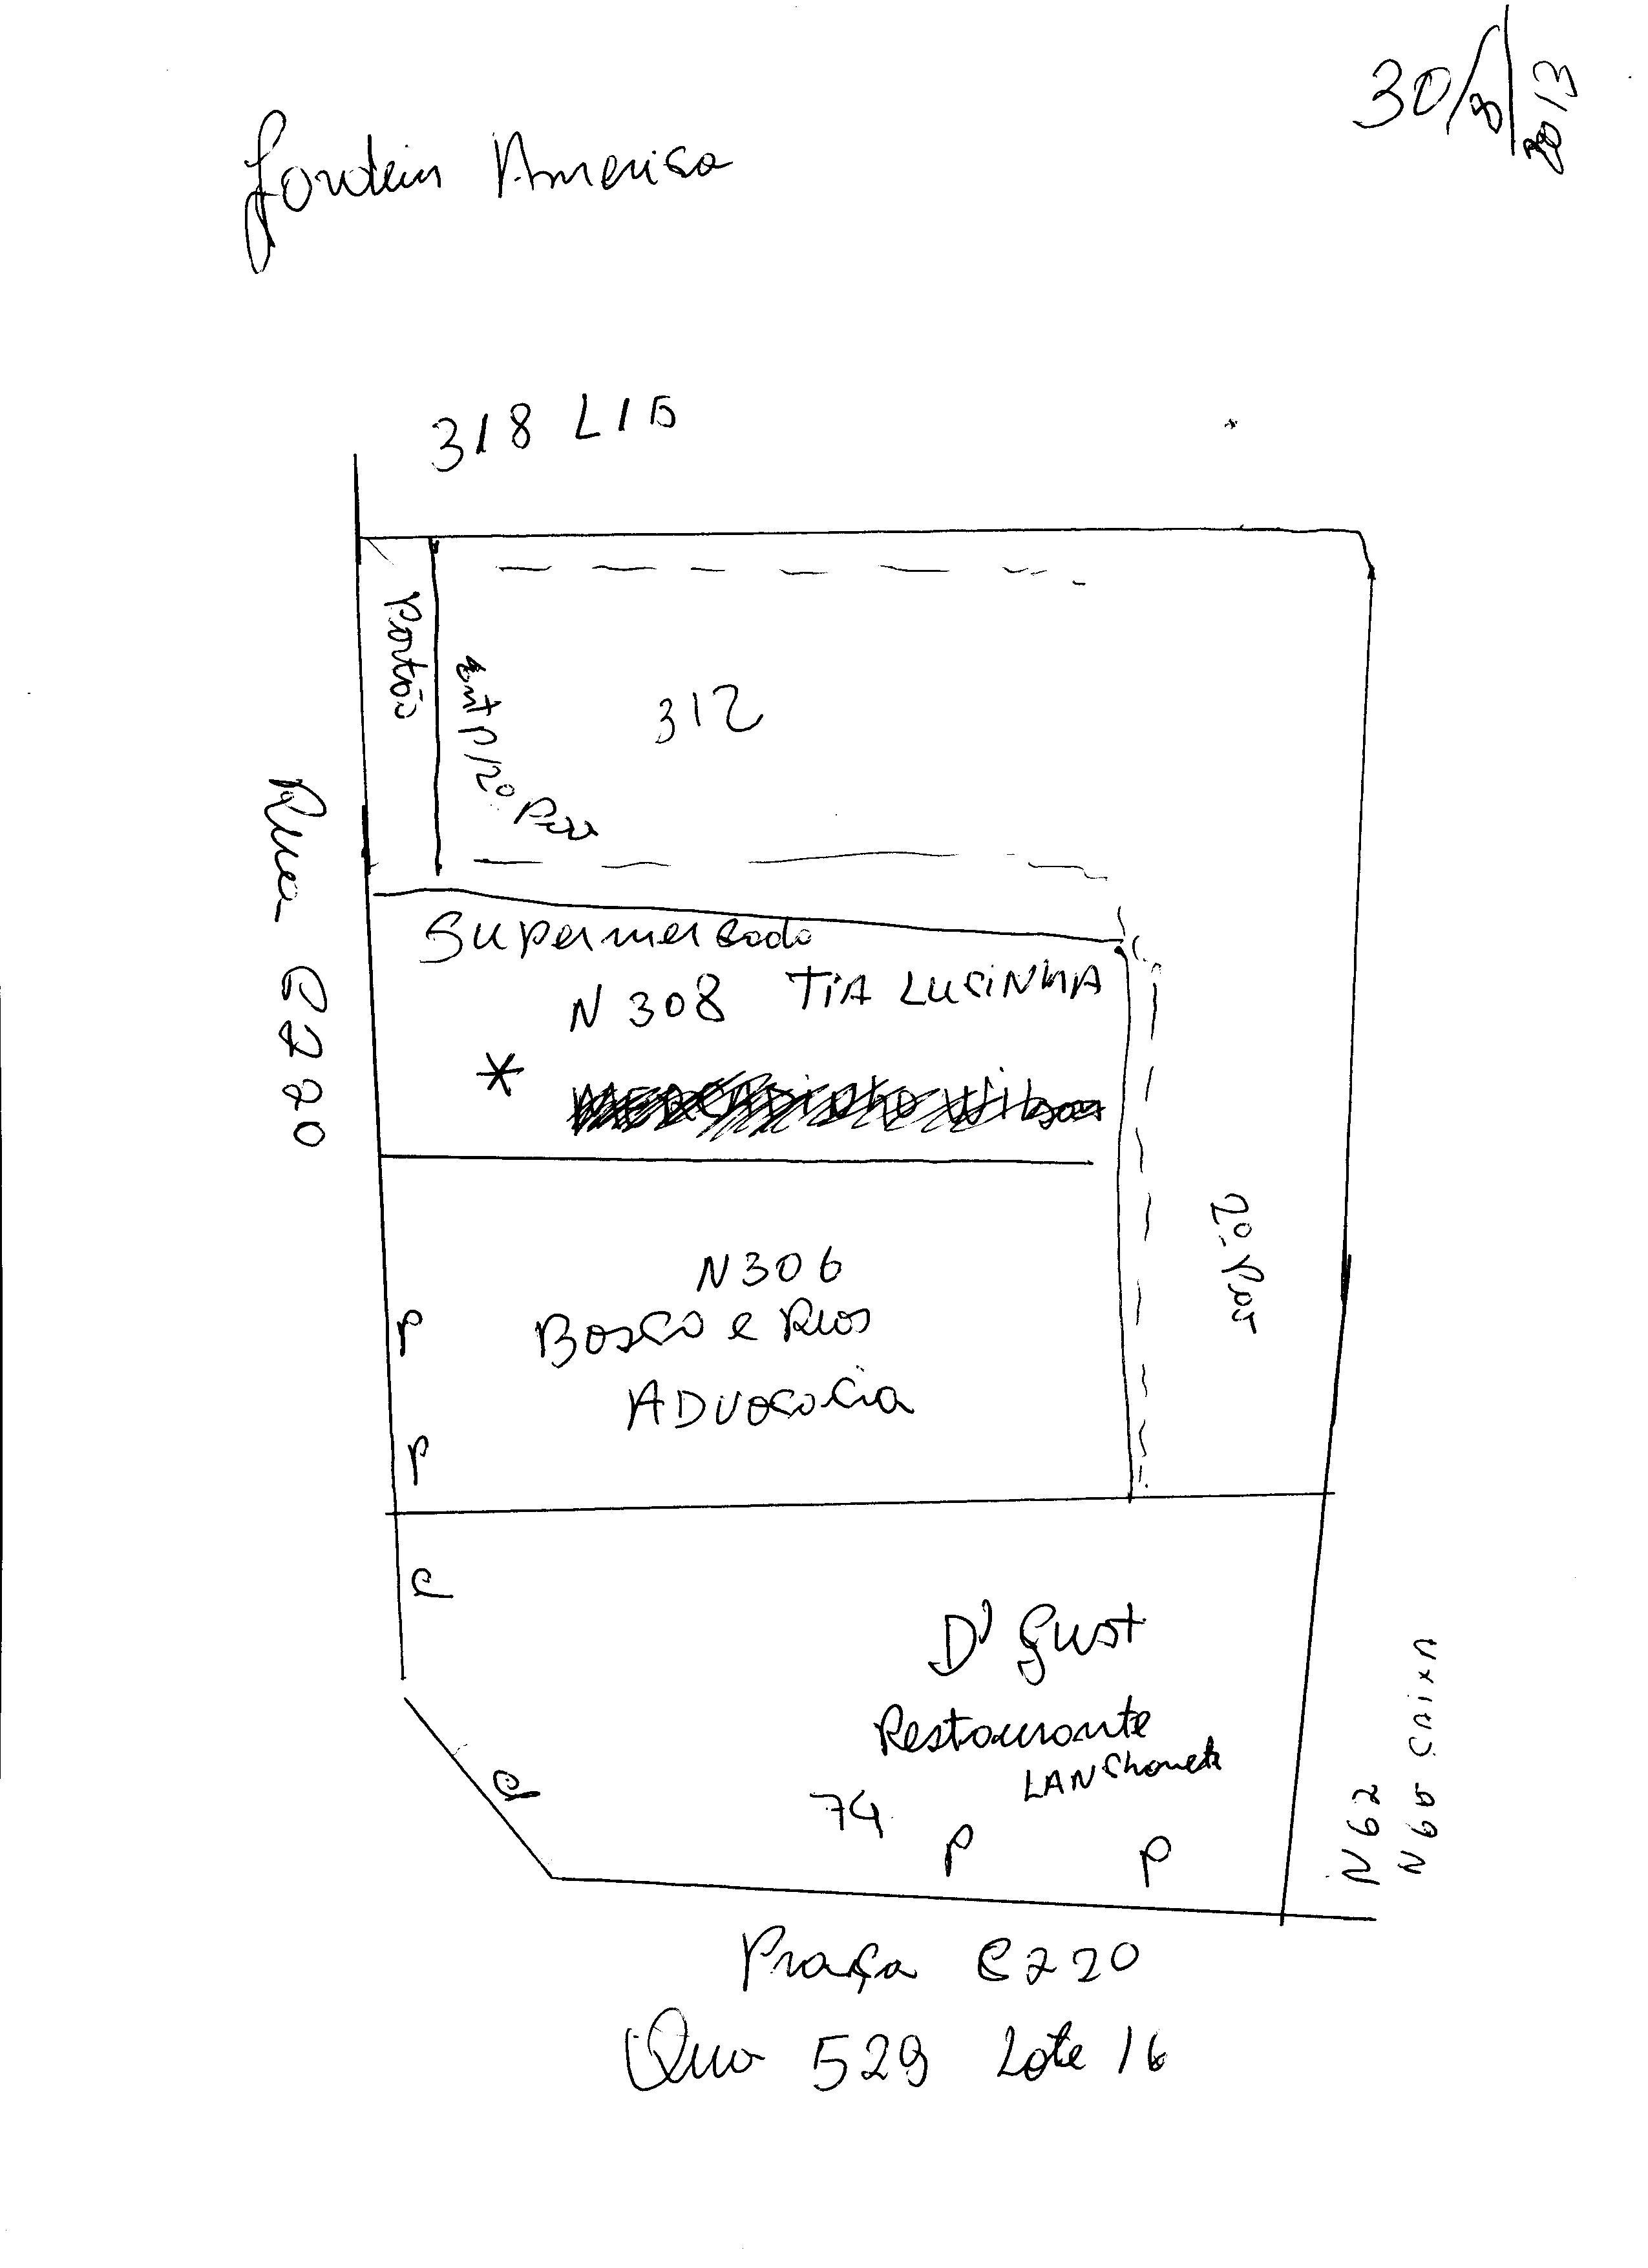 30/8/2013
Jardim America
318 L15
Portão
ent p/ 2º Pav
312
Rua C220
Supermercado
N 308 TIA LUCINHA
*
2º Pav
N306
P
Bosco e Rios
ADVOCACIA
P
P
D' Gust
Restaurante
LANChonete
P
74
P
P
N62
N60 CAIXA
Praça C220
Qua 529 Lote 16